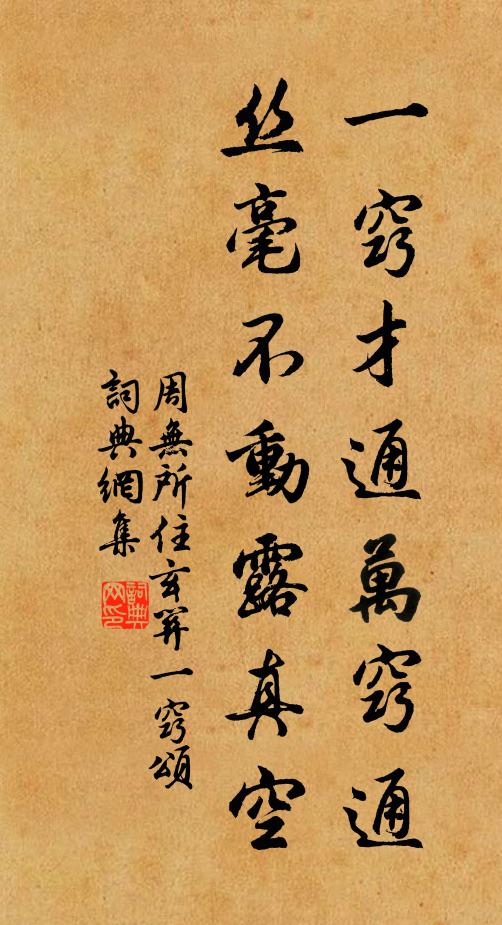 一窍才通萬窍通
丝毫不動露真空
周無所住玄関一窍頌
詞典網集
詞典网印